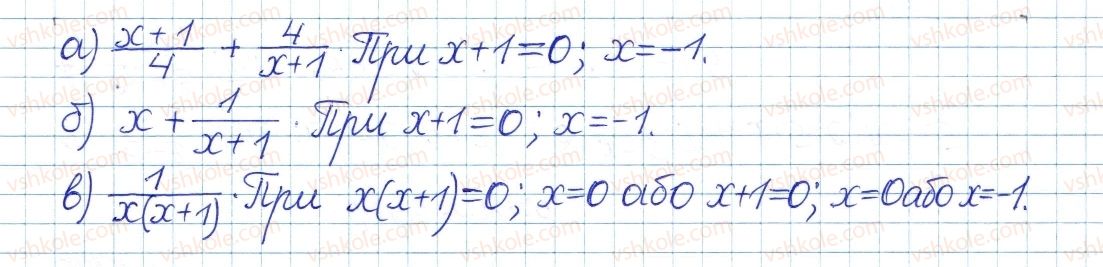 а) (x+1)/4 + 4/(x+1). При x+1=0; x=-1.
б) x + 1/(x+1). При x+1=0; x=-1.
в) 1/(x(x+1)). При x(x+1)=0; x=0 або x+1=0; x=0 або x=-1.